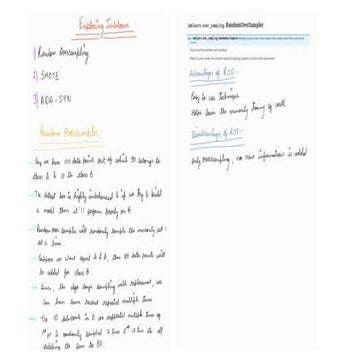 Exploring Imblearn
1) Random Oversampling
2) SMOTE
3) ADA-SYN
Random Oversampler
Say we have 100 data points out of which 90 belongs to
class A & 10 to class B
The dataset here is highly imbalanced & if we try & build
a model then it'll perform poorly on B
Random over sampler will randomly sample the minority pt 1
at a time
Suppose we want equal A & B, then 80 data points will
be added for class B
Since, the algo says sampling with replacement, we
can have same record repeated multiple times
The 10 datapoints in B are repeated multiple times eg
1st pt is randomly sampled 7 times 2nd 11 times etc all
adding the sum to 80
imblearn.over_sampling.RandomOverSampler
Advantages of ROS :-
Easy to use technique
Helps learn the minority
Disadvantages of ROS :-
Only oversampling, no new information is added